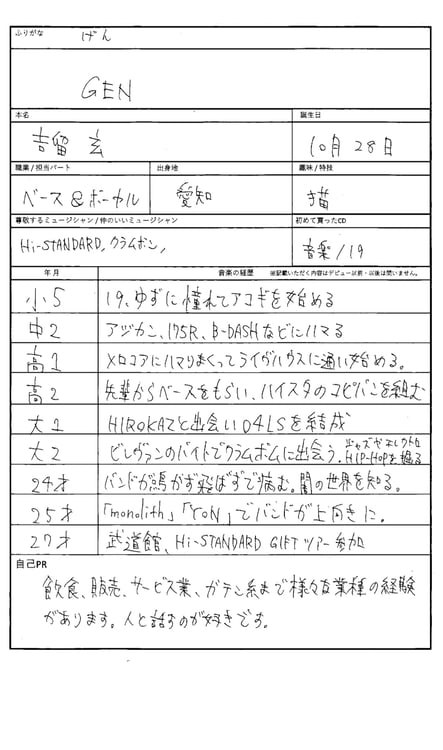 ふりがな げん
GEN
本名 誕生日
吉留 玄 10月 28日
職業/担当パート 出身地 趣味/特技
ベース&ボーカル 愛知 猫
尊敬するミュージシャン/仲のいいミュージシャン 初めて買ったCD
Hi-STANDARD, クラムボン, 音楽/19
年月 音楽の経歴 後記載いただく内容はデビュー以前・以後は問いません。
小5 19、ゆずに憧れてアコギを始める
中2 アジカン、175R、B-DASHなどにハマる
高1 メロコアにハマりまくってライヴハウスに通い始める。
高2 先輩からベースをもらい、ハイスタのコピバンを組む
大1 HIROKAZと出会い04LSを結成
大2 ビレヴァンのバイトでクラムボンに出会う. ジャズやエレクトロ
HIP-HOPを掘る
24才 バンドが鳴かず飛ばずで病む。闇の世界を知る。
25才 「monolith」「YON」でバンドが上向きに。
27才 武道館、Hi-STANDARD GIFTツアー参加
自己PR
飲食、販売、サービス業、ガテン系まで様々な業種の経験
があります。人と話すのが好きです。